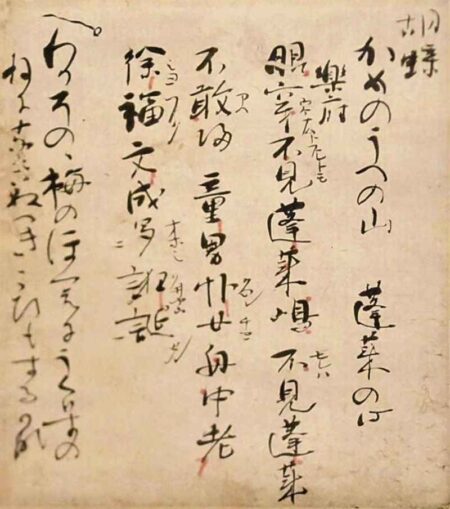 胡蝶
かめのうへの山　蓬莱の心
楽府
眼穿不見蓬莱嶋　不見蓬莱
不敢帰　童男丱女舟中老
徐福文成多誑誕
わかそのゝ梅のほつえにうくひすの
ねになきぬへきこひもする哉